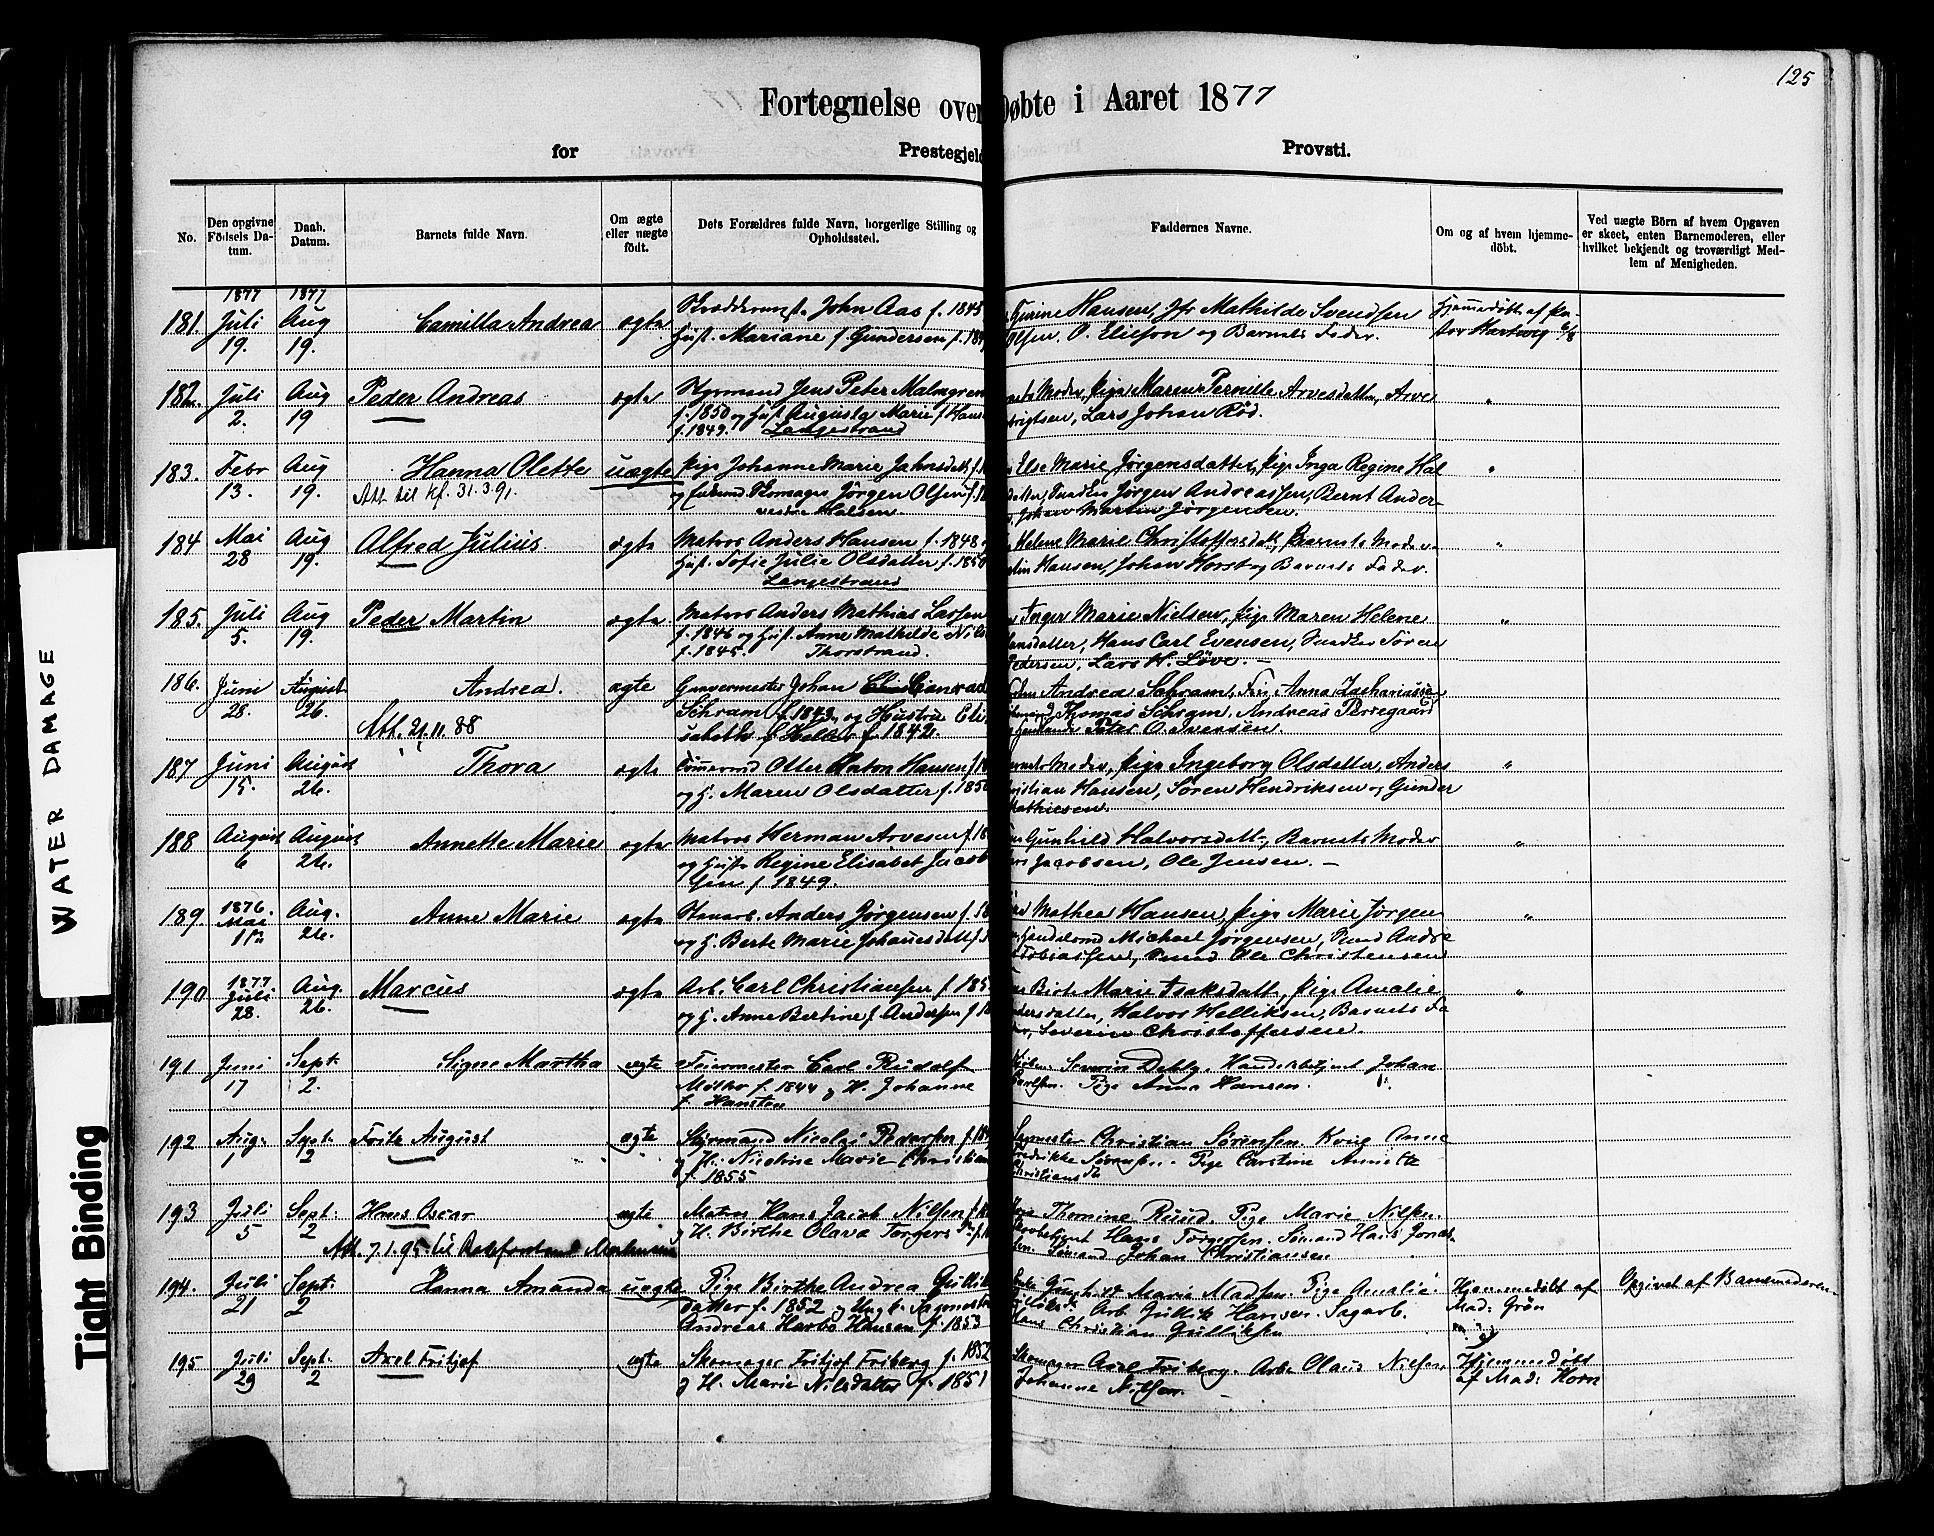 125
Fortegnelse over Døbte i Aaret 1877
for Prestegjeld Provsti.
No.
Den opgivne Fødsels Datum.
Daab. Datum.
Barnets fulde Navn.
Om ægte eller uægte født.
Dets Forældres fulde Navn, borgerlige Stilling og Opholdssted.
Faddernes Navne.
Om og af hvem hjemmedöbt.
Ved uægte Börn af hvem Opgaven er skeet, enten Barnemoderen, eller hvilket bekjendt og troværdigt Medlem af Menigheden.
1877 1877
181. Juli 19. Aug 19. Camilla Andrea ægte John Aas f. 1845
Hust. Mariane f. Gundersen
Hansen, Jfr Mathilde Svendsen
Olsen, O. Elieson og Barnets Fader.
Hjemmedöbt af Pastor Hartwig 6/8
182. Juli 2. Aug 19 Peder Andreas ægte Styrmand Jens Peter Malmgren
f. 1850 og Hust Augusta Marie f Hans
f. 1849. Langestrand
Moder, Pige Maren Pernille Arvesdatter, Arve
Lars Johan Röd. "
183. Febr 13. Aug 19. Hanna Olette uægte Pige Johanne Marie Jahnsdatt
Att til kf. 31.3.91. og Skomager Jörgen Olsen
Halsen.
Else Marie Jörgensdatter, Pige Inga Regine Hal
datter, Snedker Jörgen Andreassen, Bernt Ander-
Johan Martin Jörgensen. "
184 Mai 28 Aug 19. Alfred Julius ægte Matros Anders Hansen f. 1848
Hust. Sofie Julie Olsdatter f. 1850
Langestrand
Helene Marie Christoffersdatt, Barnets Moder
Hansen, Johan Horst og Barnets Fader. "
185. Juli 5. Aug 19. Peder Martin ægte Matros Anders Mathias Larsen
f. 1846 og Hust. Anne Mathilde Nils
f. 1845. Thorstrand.
Inger Marie Nielsen, Pige Maren Helene
Hansdatter, Hans Carl Evensen, Snedker Sören
Pedersen, Lars H. Löve. — "
186. Juni 28. August 26. Andrea. ægte Garvermester Johan Conrad
Att. 21.11.88 Schram f. 1843, og Hustru Eli
sabeth f Keller f. 1842.
Andrea Schram, Frk. Anna Zachariassen
Thomas Schram, Andreas Perregaard
Peter O. Iversen.
187 Juni 15. August 26. Thora ægte Tømmermd Otter Anton Hansen
og H. Maren Olsdatter f. 1850
Moder, Pige Ingeborg Olsdatter, Anders
Christian Hansen, Sören Hendriksen og Gunder
Mathiesen. "
188 August 6 August 26. Annette Marie ægte Matros Herman Arvesen
og Hust Regine Elisabet Jacob
sen f. 1849.
Gunhild Halvorsdatt, Barnets Moder
Jacobsen, Ole Jensen. — "
189. 1876. Mai Aug. 26. Anne Marie ægte Anders Jörgensen
og H. Berte Marie Johannesdatt
Mathea Hansen, Pige Marie Jörgen
Michael Jörgensen, Andre
Tobiassen, Ole Christensen "
190 1877 Juli 28. Aug. 26. Marcus ægte Arb. Carl Christiansen
og H. Anne Bertine f. Andersen
Marie Isaksdatt, Pige Amelie
Andersdatter, Halvor Helliksen, Barnets Fa
der, Severin Christoffersen. "
191 Juni 17 Sept. 2. Signe Martha ægte Feiermester Carl Rudolf
f. 1844 og H. Johanne
f. Hansten
Severin Dehly. Handelsbetjent Johan
Carlsen. Pige Anna Hansen.
192 Aug. 1 Sept. 2 Fritz August ægte Styrmand Nicolai Pedersen
og H. Nicoline Marie Christian
f. 1855
Christian Sörensen. Kone Anne
Fredrikke Sörensen. Pige Carstine Annette
Christiansdtr
193 Juli 5 Sept. 2 Hans Oscar ægte Matros Hans Jacob Nilsen
Att. 7.1.95 til og H. Birthe Olava Torgers
Thomine Ruud. Pige Marie Nilsen.
Hans Torgersen. Sömand Hans Jonas-
sen. Sömand Johan Christiansen
194. Juli 21 Sept. 2 Hanna Amanda uægte Pige Birthe Andrea Gulliks
datter f. 1852 og Ungk. Sagmester
Andreas Harbo Hansen f. 1853
Marie Madsen. Pige Amalie
Arb. Gullik Hansen. Sagarb.
Hans Christian Gulliksen
Hjemmedöbt af Mad. Grön
Opgivet af Barnemoderen
195 Juli 29 Sept. 2 Axel Fritjof ægte Skomager Fritjof Friberg f. 1852
og H. Marie Nilsdatter f. 1851
Skomager Axel Friberg. Arb. Olaus Nilsen.
Johanne Nilsen. —
Hjemmedöbt af Mad. Horn
WATER DAMAGE
Tight Binding